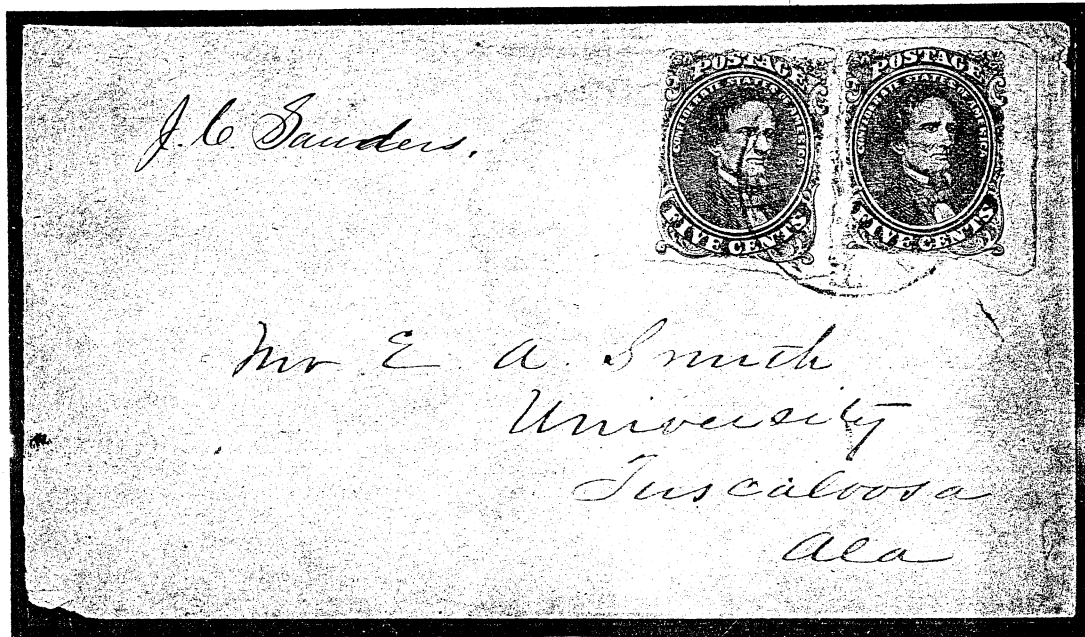 POSTAGE
CONFEDERATE STATES OF AMERICA
FIVE CENTS
POSTAGE
CONFEDERATE STATES OF AMERICA
FIVE CENTS
J. C Sanders.
Mr E. A. Smith
University
Tuscaloosa
Ala